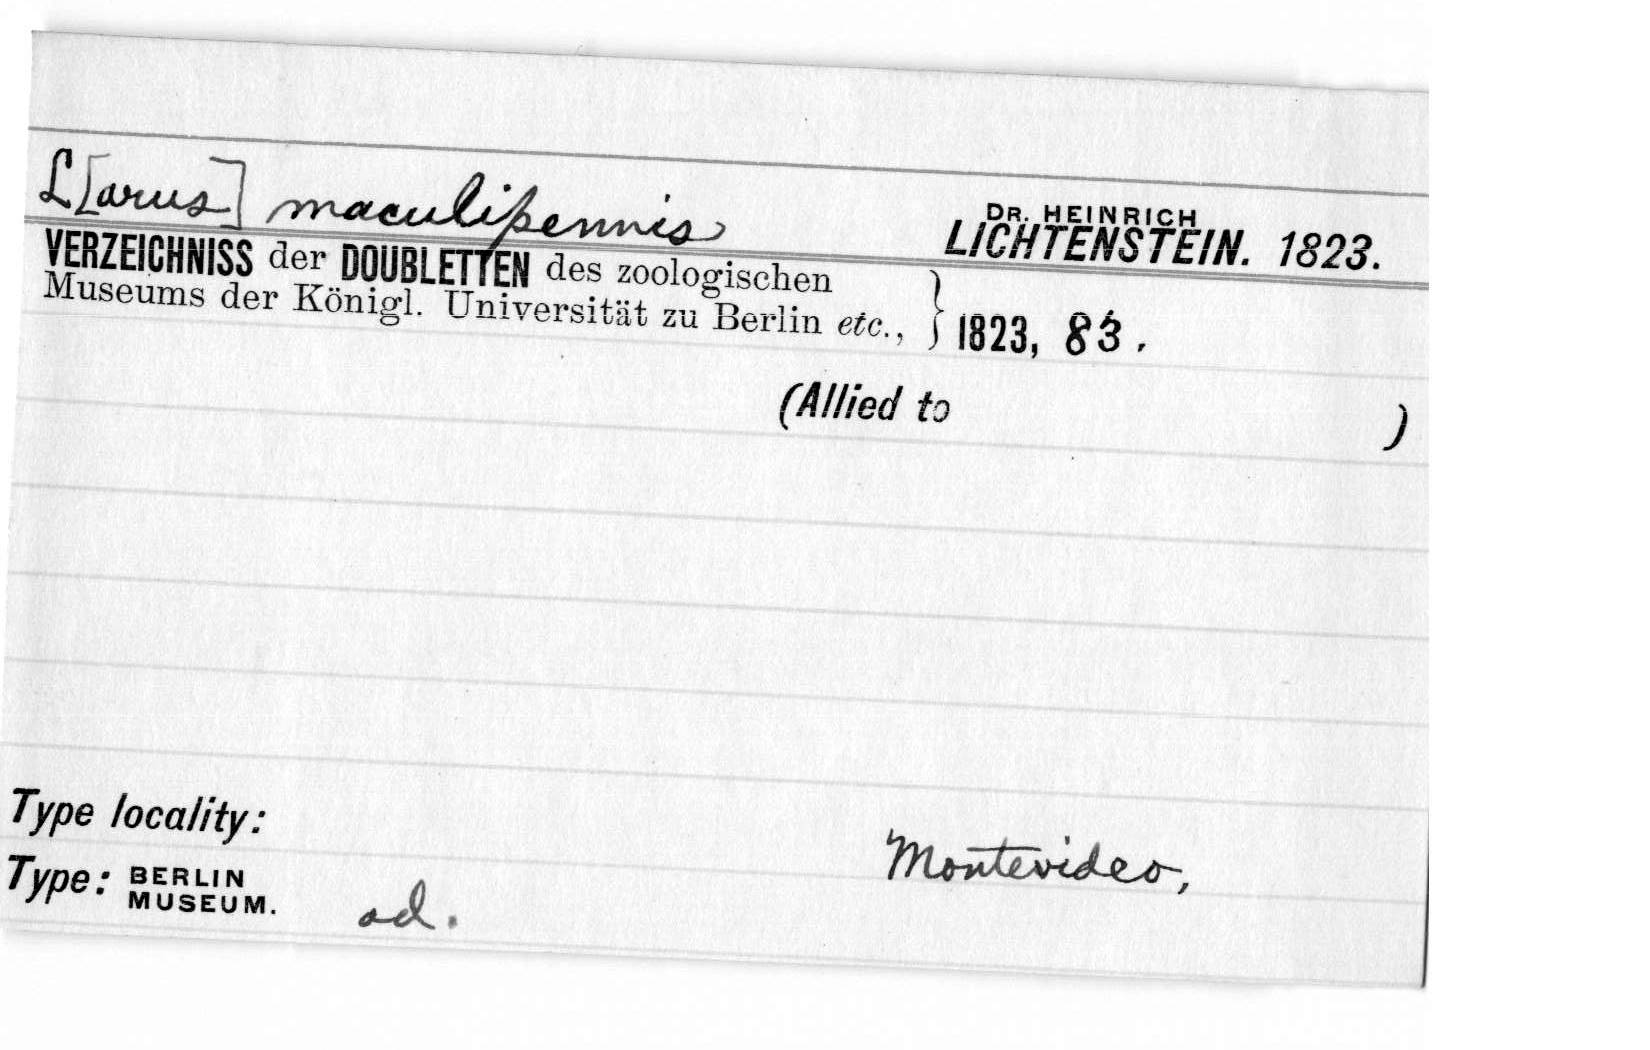 L[arus] maculipennis
DR. HEINRICH
LICHTENSTEIN. 1823.
VERZEICHNISS der DOUBLETTEN des zoologischen
Museums der Königl. Universität zu Berlin etc., } 1823, 83.
(Allied to )
Type locality:
Montevideo,
Type: BERLIN
MUSEUM. ad.